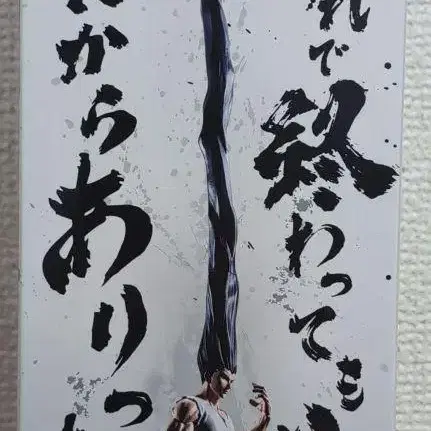 れで終わっても
だからありっ